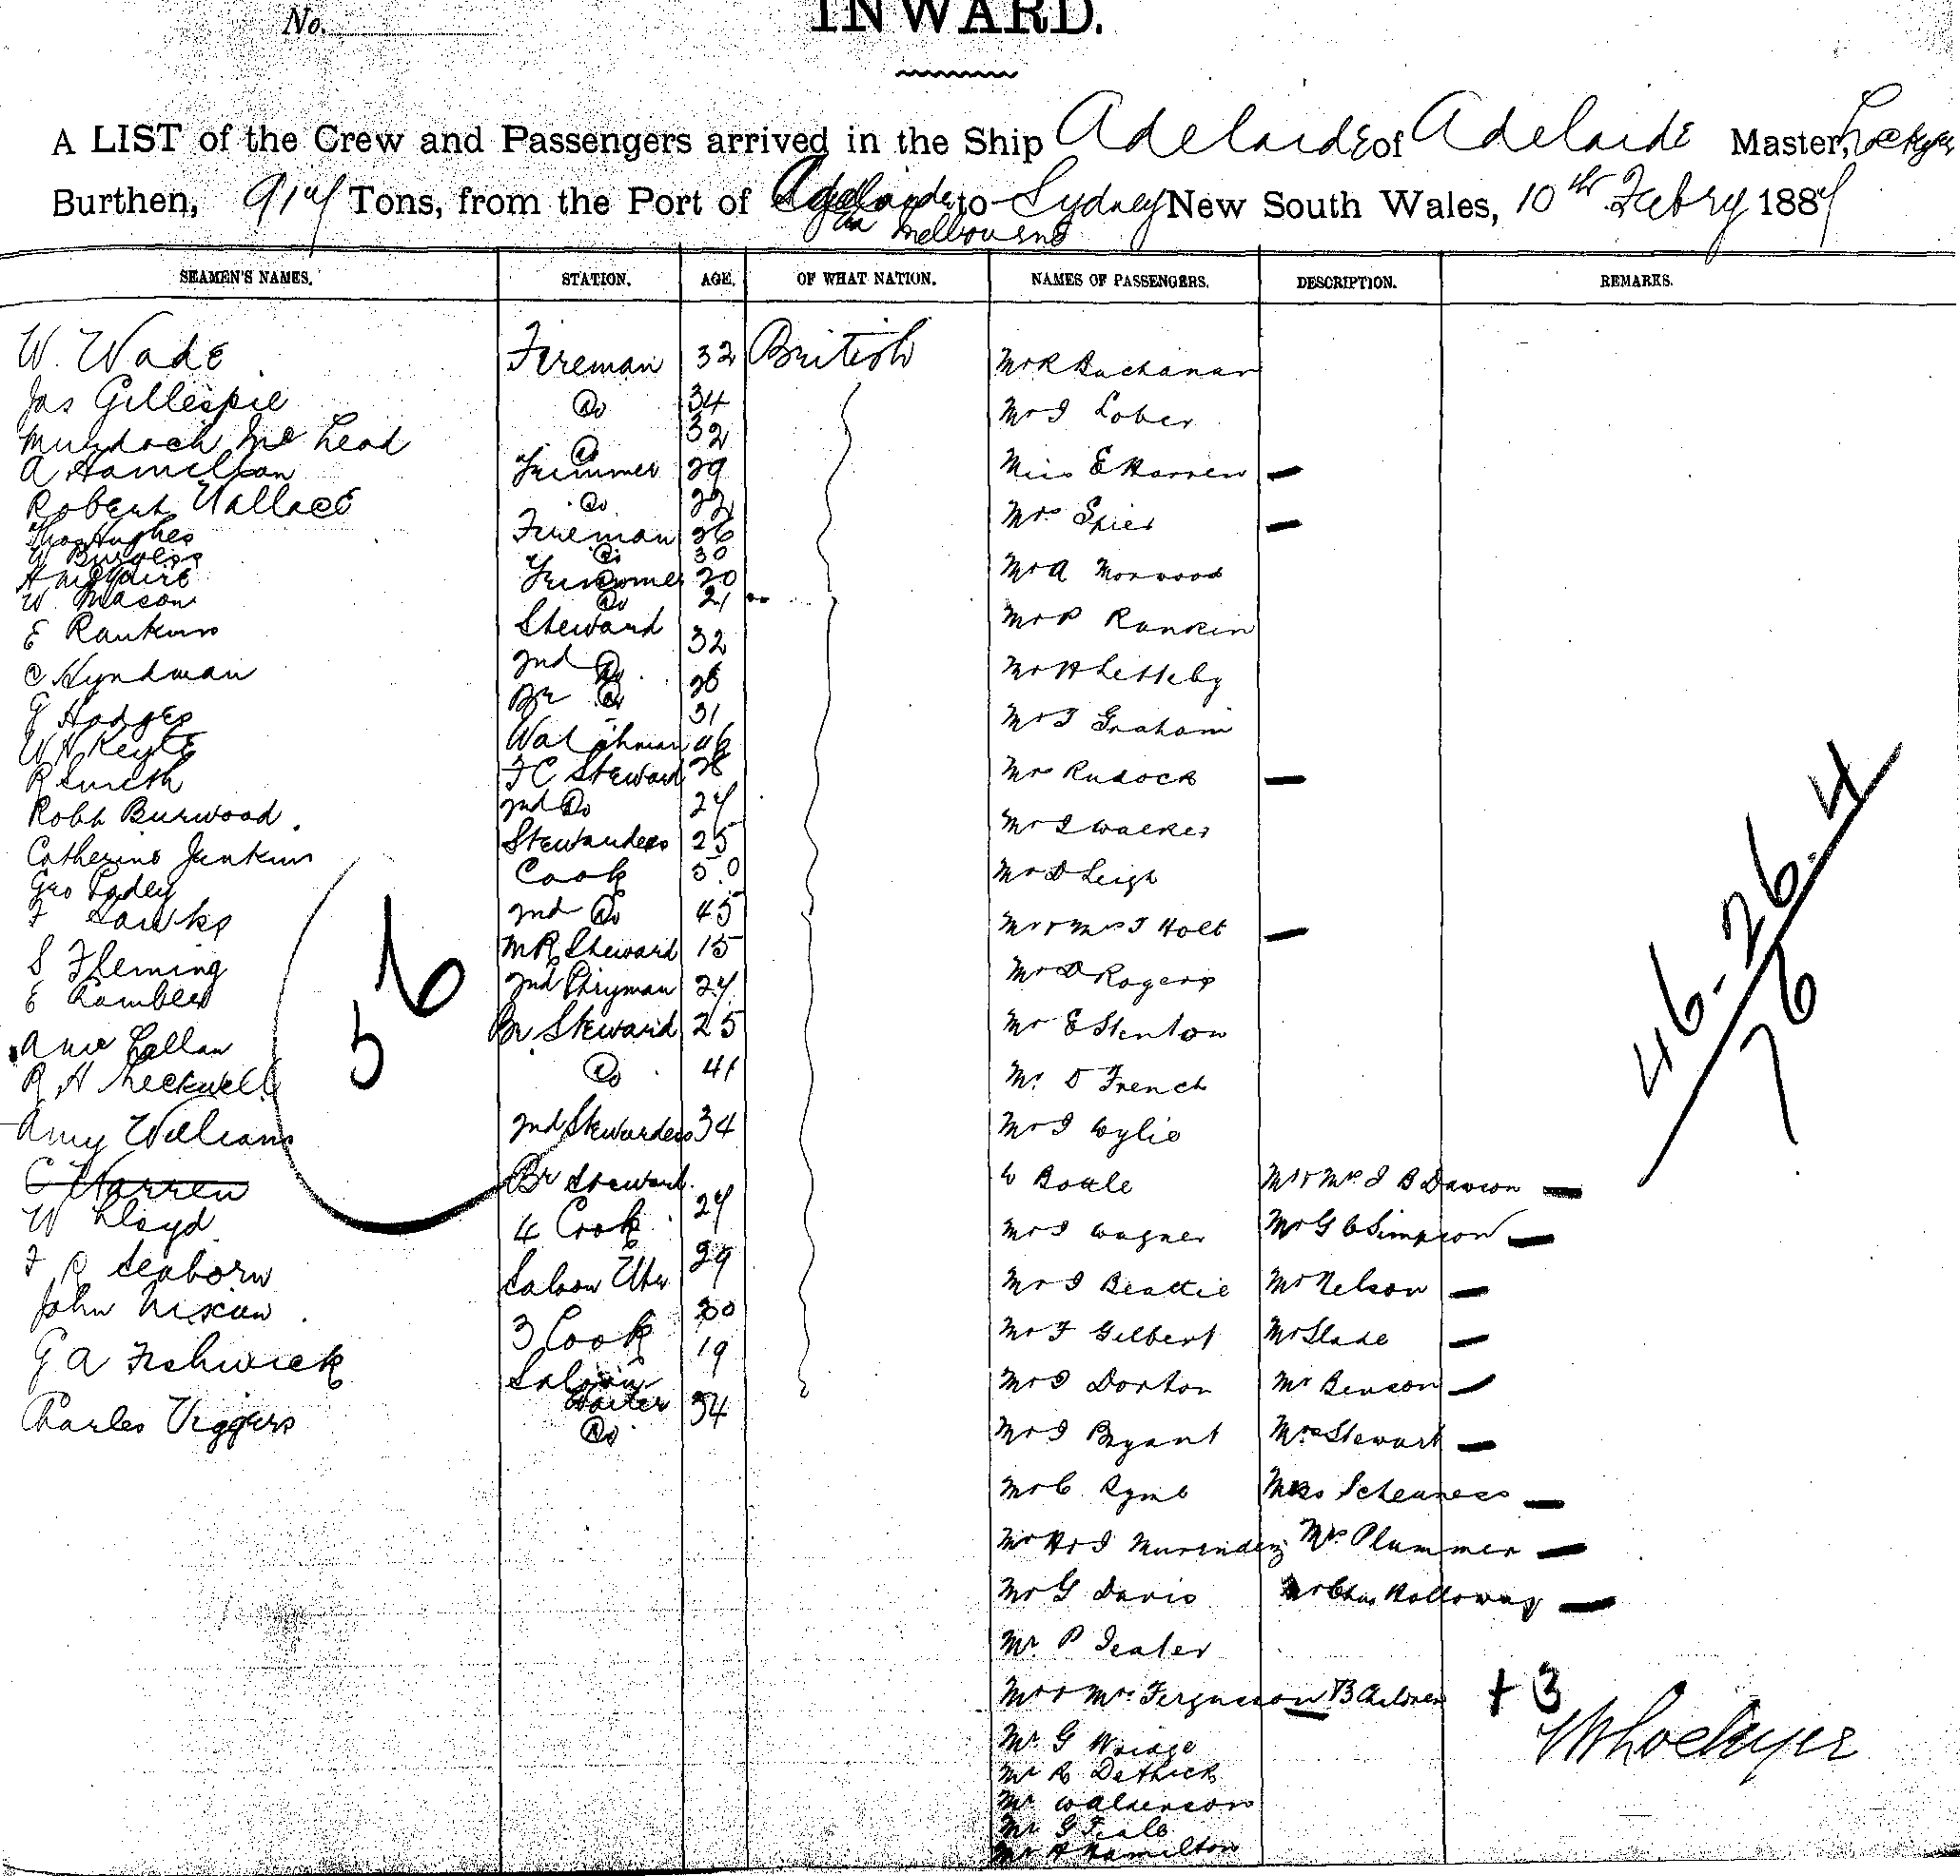 No.
INWARD.
A LIST of the Crew and Passengers arrived in the Ship Adelaide of Adelaide Master, Lockyer
Burthen, 914 Tons, from the Port of Adelaide to Sydney New South Wales, 10th Febry 1884
via Melbourne
SEAMEN'S NAMES. STATION. AGE. OF WHAT NATION. NAMES OF PASSENGERS. DESCRIPTION. REMARKS.
W. Wade Fireman 32 British Mr R Buchanan
Jas Gillespie Do 34 Mr J Lober
Murdoch McLeod Do 32
A Hamilton Trimmer 29 Miss E Warren
Robert Wallace Do 22 Mrs Spier
Thos Hughes Fireman 26
W Burgess Do 30
A McGuire Trimmer 20 Mr A Norwood
W. Mason Do 21
E Rankins Steward 32 Mr P Rankin
C Hyndman 2nd Do 28 Mr H Letteby
G Hodges Br Do 31 Mr J Graham
W H Keyte Watchman 46
R Smith F C Steward 28 Mrs Rudock
Robt Burwood 2nd Do 24 Mr J Walker
Catherine Jenkins Stewardess 25
Geo Ladey Cook 50 Mr D Leigh
F Hawks 2nd Do 45 Mr & Mrs J Holt
S Fleming MR Steward 15 Mr D Rogers
E Rambler 2nd Do 24
Callan Br Steward 25 Mr E Stenton
R H Leckwell Do 41 Mr D French
Amy Williams 2nd Stewardess 34 Mr J Wylie
C Warren Br Steward Boule Mr & Mrs J B Dawson
W Lloyd 4 Cook 24 Mr J Wagner Mr G C Simpson
F R Seaborn Saloon 29 Mr J Beattie Mr Nelson
John Nixon 3 Cook 30 Mr F Gilbert Mr Slade
G A Fishwick Saloon Waiter 19 Mr J Dorton Mr Benson
Charles Viggers Do 34 Mr J Bryant Mrs Stewart
Mr C Ryme
Mr H & J Mr Plummer
Mr G Davis Mr Chas Holloway
Mr P
Mr & Mrs Fergusson & 3 Children + 3
Mr G
Mr R Dethick
Mr Walderson
Mr G Teale
Mr A Hamilton
56
46-26.4
76
W Lockyer